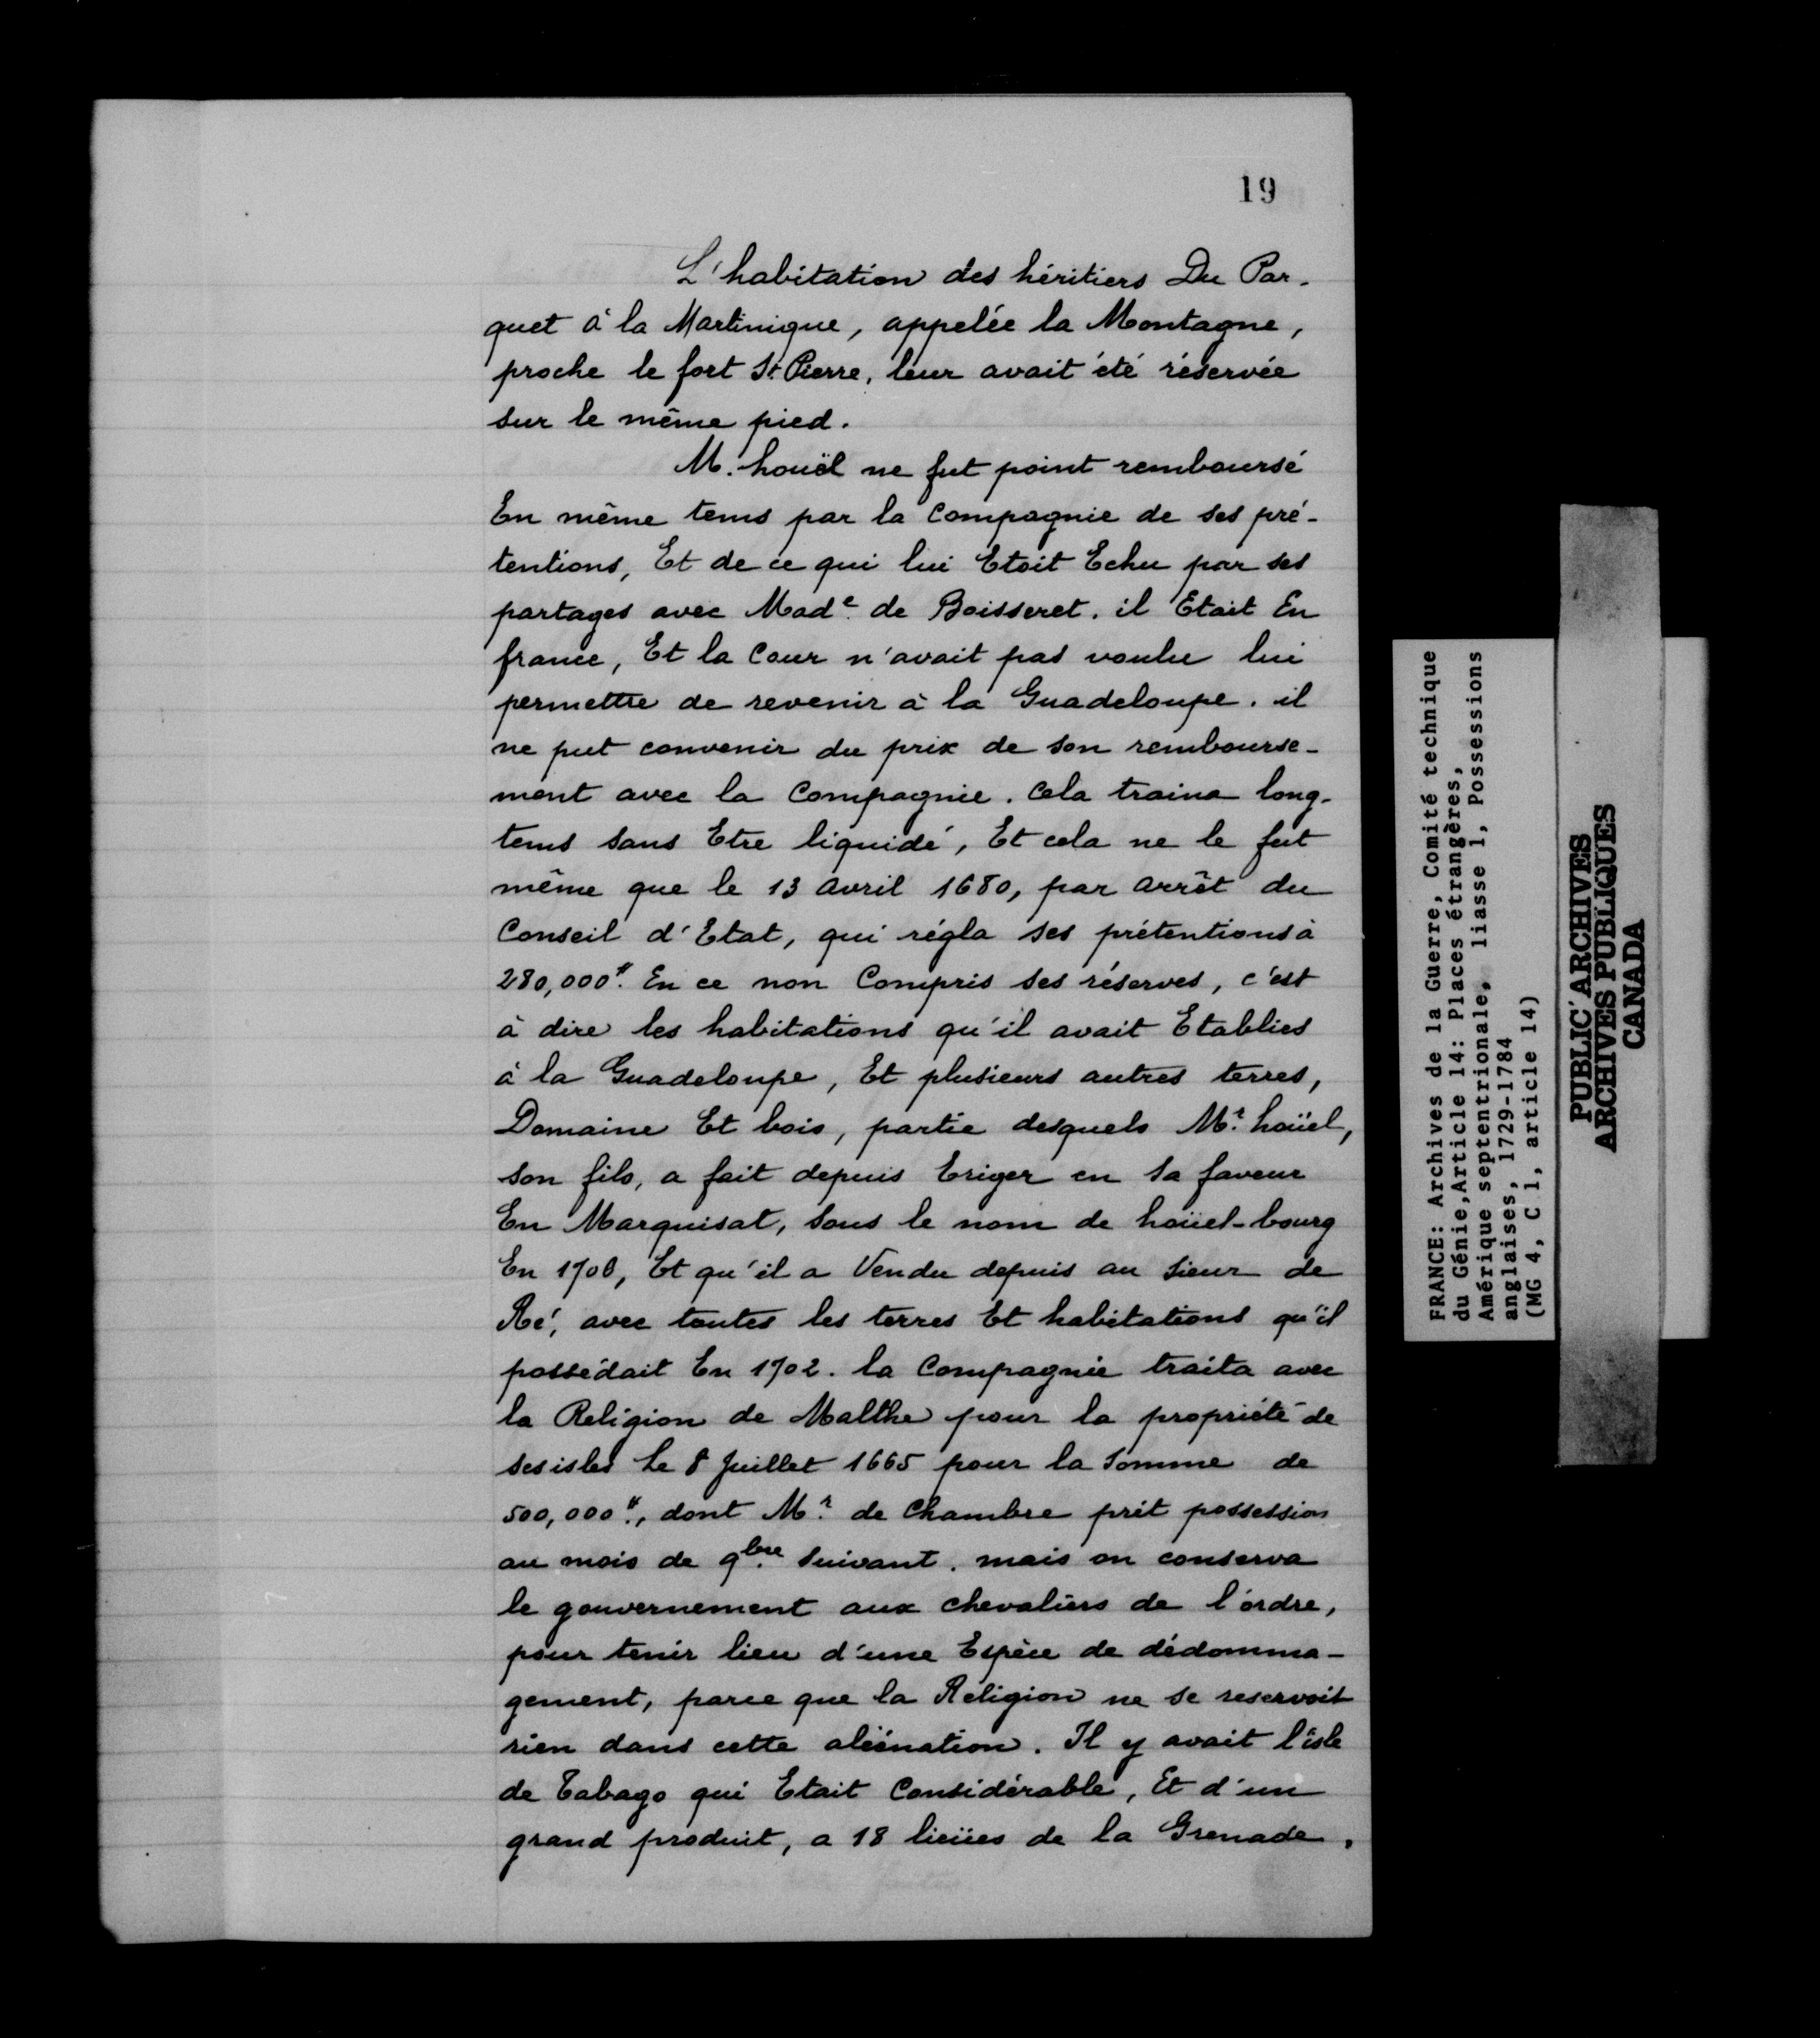 19
L'habitation des héritiers Du Par-
quet à la Martinique, appelée la Montagne,
proche le fort St Pierre, leur avait été réservée
sur le même pied.
M. houël ne fut point remboursé
En même tems par la Compagnie de ses pré-
tentions, Et de ce qui lui Etoit Echu par ses
partages avec Made. de Boisseret. il Etait En
france, Et la Cour n'avait pas voulu lui
permettre de revenir à la Guadeloupe. il
ne put convenir du prix de son rembourse-
ment avec la Compagnie. Cela traina long-
tems sans Etre liquidé, Et cela ne le fut
même que le 13 avril 1680, par arrêt du
Conseil d'Etat, qui régla ses prétentions à
280,000#. En ce non Compris ses réserves, c'est
à dire les habitations qu'il avait Etablies
à la Guadeloupe, Et plusieurs autres terres,
Domaine Et bois, partie desquels Mr. hoüel,
son fils, a fait depuis Eriger en sa faveur
En Marquisat, sous le nom de hoüel-bourg
En 1708, Et qu'il a Vendu depuis au Sieur de
Ré, avec toutes les terres Et habitations qu'il
possédait En 1702. la Compagnie traita avec
la Religion de Malthe pour la propriété de
ses isles le 8 Juillet 1665 pour la Somme de
500,000#., dont Mr. de Chambre prit possession
au mois de 9bre. Suivant. mais on conserva
le gouvernement aux chevaliers de l'ordre,
pour tenir lieu d'une Espèce de dédomma-
gement, parce que la Religion ne se reservoit
rien dans cette aliénation. Il y avait l'isle
de Tabago qui Etait Considérable, Et d'un
grand produit, a 18 lieües de la Grenade.
FRANCE: Archives de la Guerre, Comité technique
du Génie,Article 14: Places étrangères,
Amérique septentrionale, liasse 1, Possessions
anglaises, 1729-1784
(MG 4, C 1, article 14)
PUBLIC ARCHIVES
ARCHIVES PUBLIQUES
CANADA